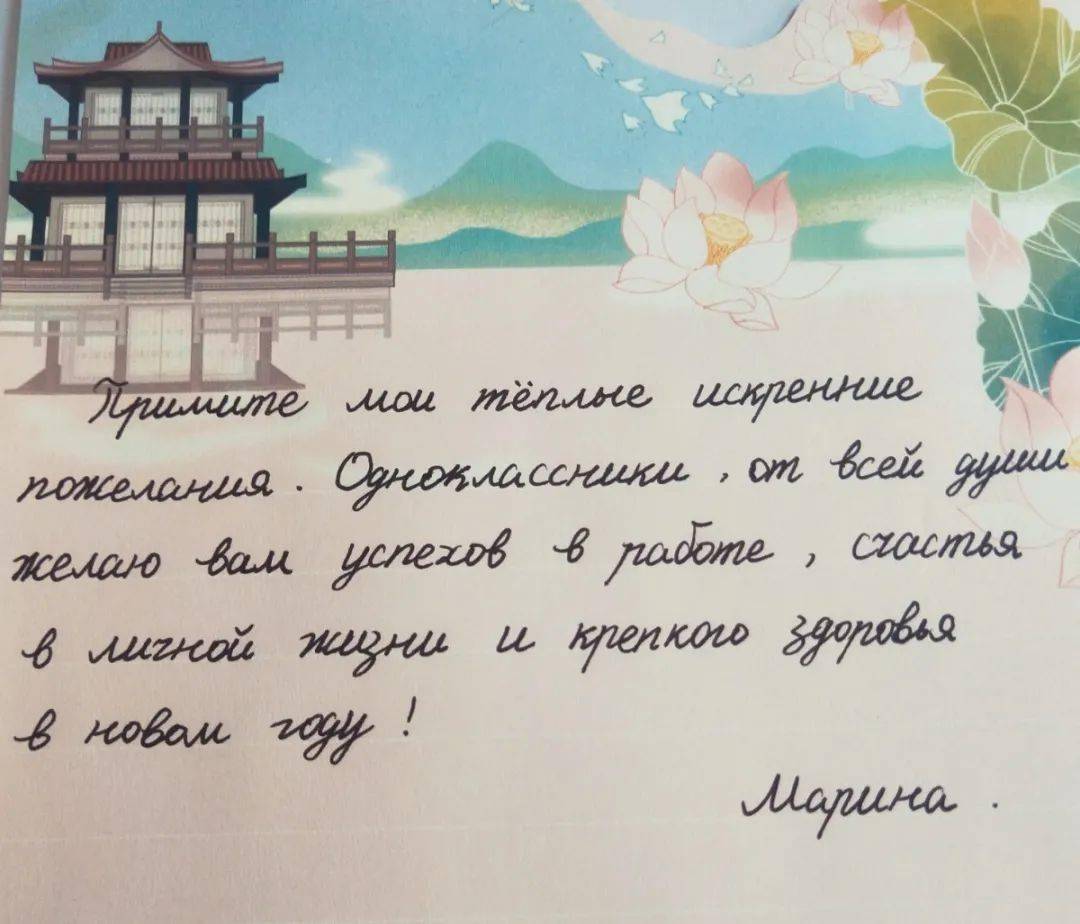 Примите мои тёплые искренние
пожелания. Одноклассники, от всей души
желаю вам успехов в работе, счастья
в личной жизни и крепкого здоровья
в новом году!
Марина.